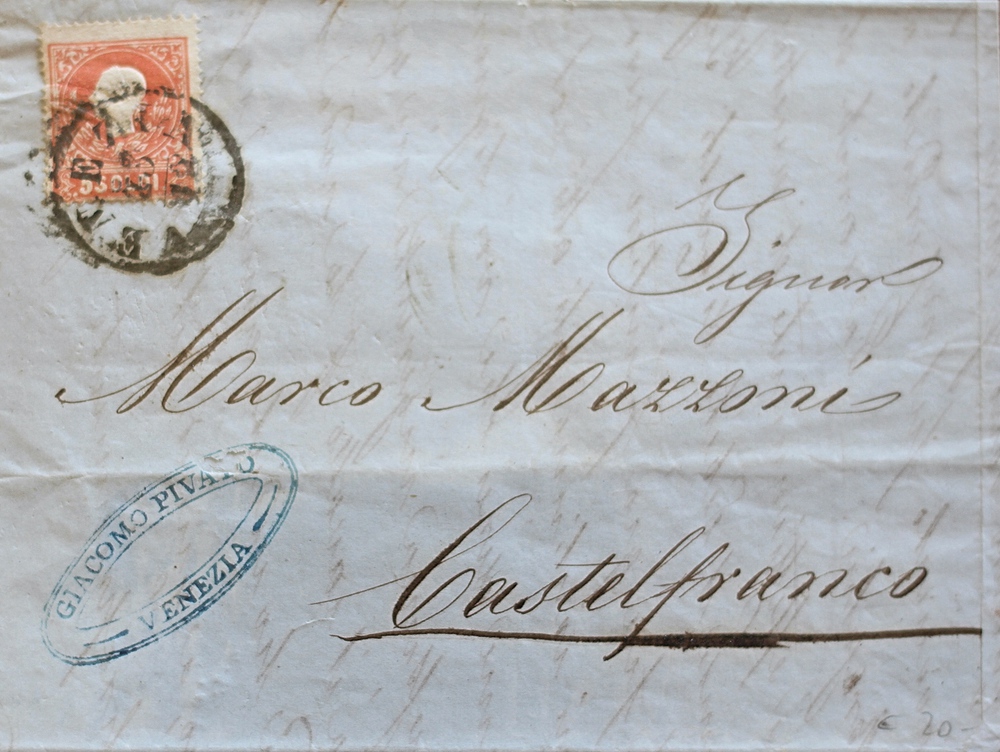 5 SOLDI
VENEZIA
Signor
Marco Mazzoni
GIACOMO PIVATO
VENEZIA
Castelfranco
€ 20-